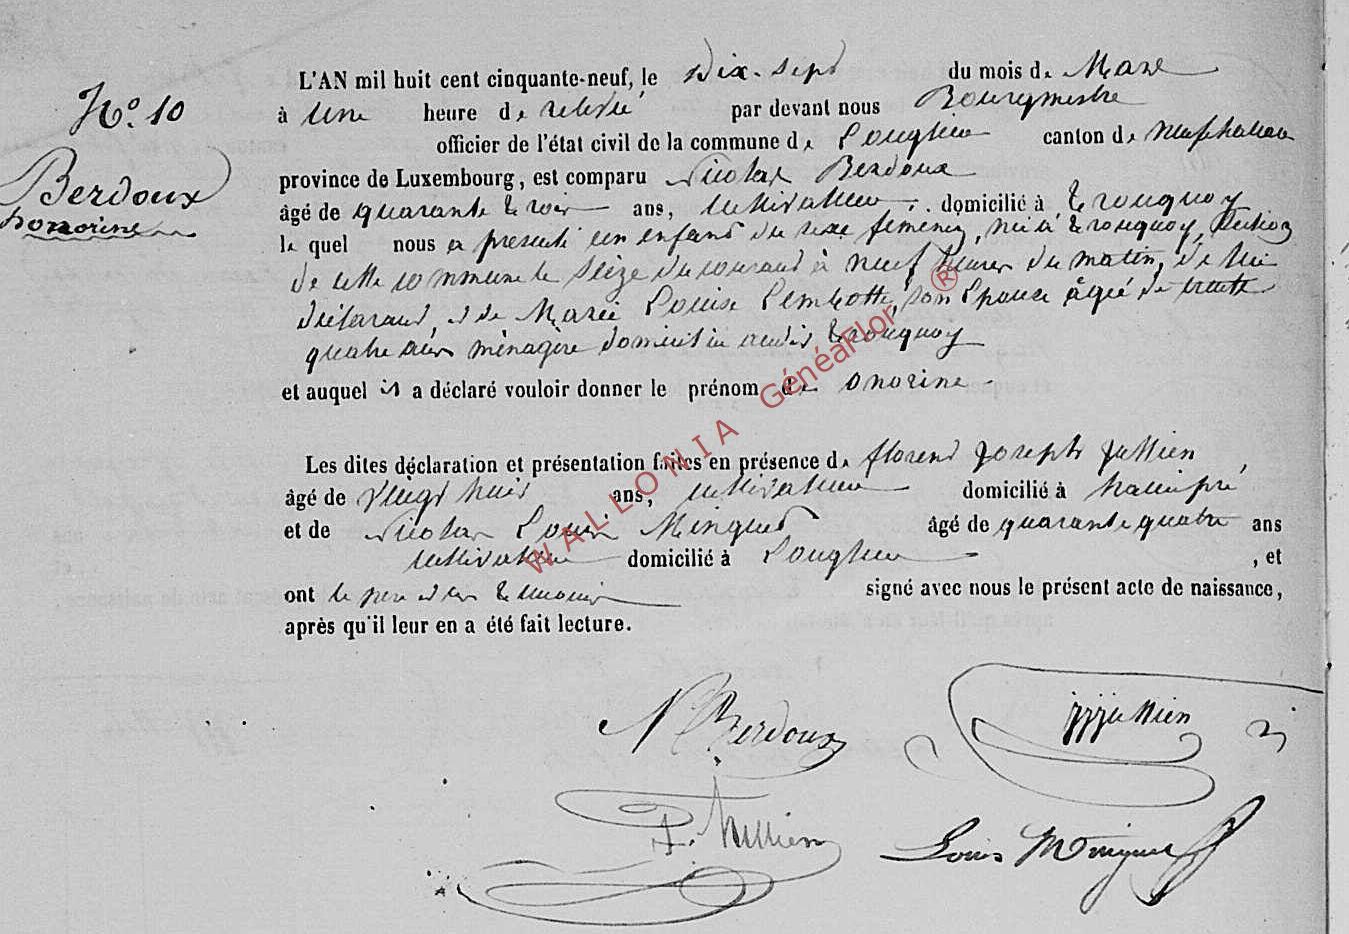 L'AN mil huit cent cinquante-neuf, le Dix-Sept du mois de Mars
No. 10
à une heure de relevée par devant nous Bourgmestre
officier de l'état civil de la commune de Longlier canton de Neufchateau
Berdoux
honorine
province de Luxembourg, est comparu Nicolas Berdoux
âgé de quarante trois ans, cultivateur domicilié à Tronquoy
lequel nous a presenté un enfant du sexe feminin, né à Tronquoy, Section
de cette commune le Seize du courant à neuf heures du matin, de lui
déclarant, et de Marie Louise son Epouse âgée de trente
quatre ans ménagère domiciliée audit Tronquoy
et auquel il a déclaré vouloir donner le prénom de onorine
Les dites déclaration et présentation faites en présence de florent Joseph Jullien,
âgé de Vingt huit ans, cultivateur domicilié à hamipré
et de Nicolas Louis Minguet âgé de quarante quatre ans
cultivateur domicilié à Longlier, et
ont le pere et les temoins signé avec nous le présent acte de naissance,
après qu'il leur en a été fait lecture.
N Berdoux
Jullien
Jullien
Louis Minguet
WALLONIA GénéaFlor ®